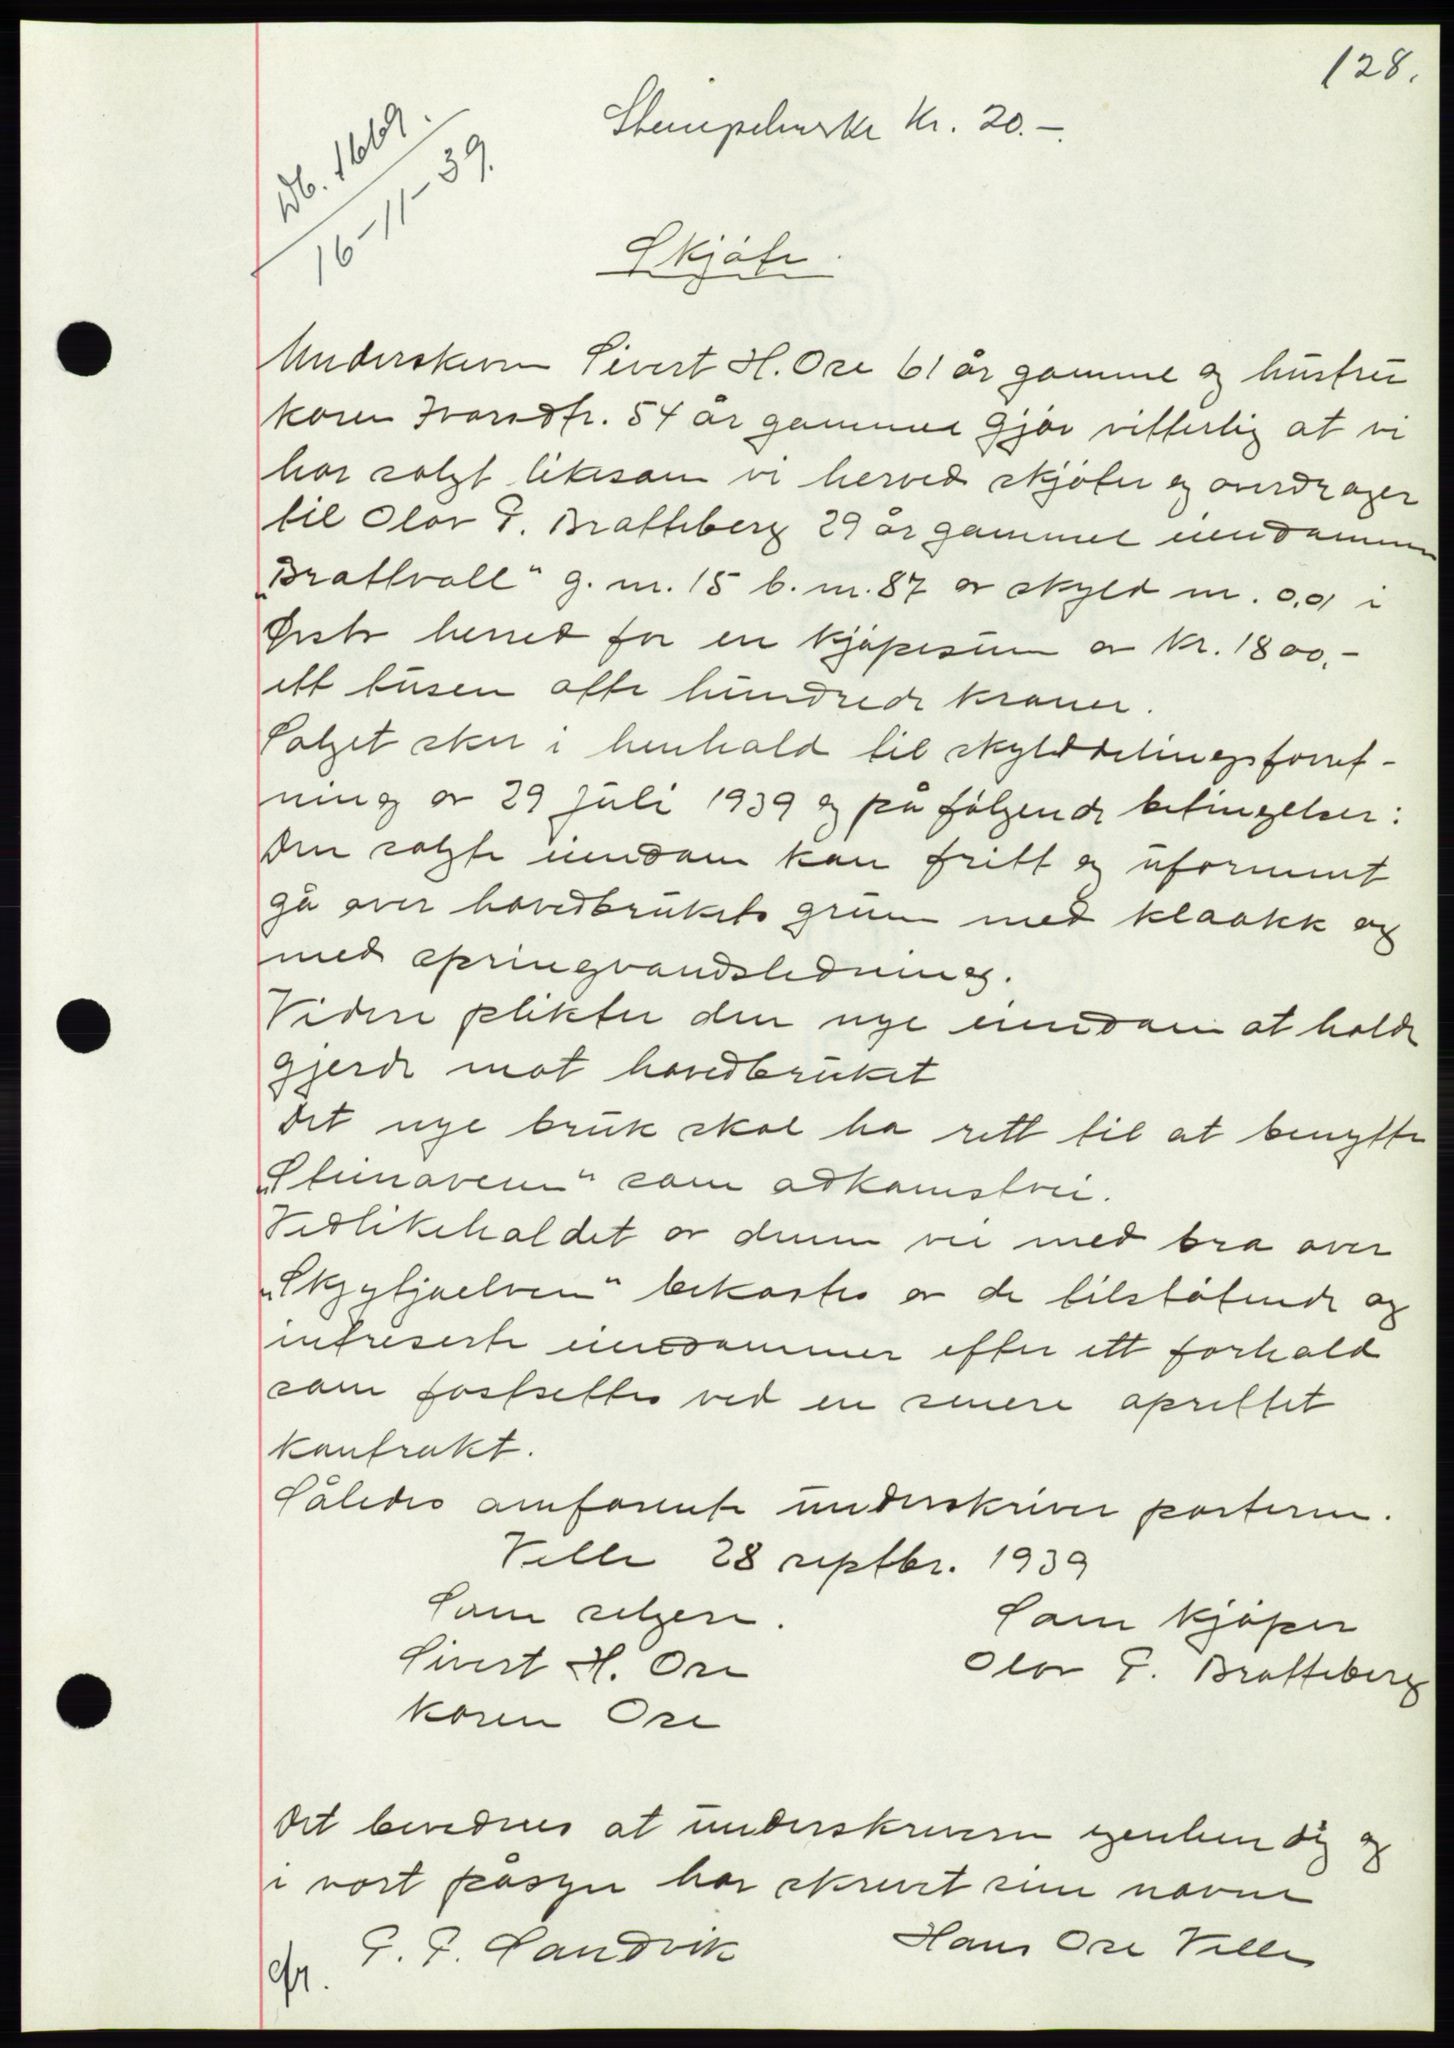 128.
Stempelmerke Kr. 20.-.
Db. 1669.
16-11-39.
Skjøte.
Underskrevne Sivert H. Ose 61 år gamme og hustru
Karen Ivarsdtr. 54 år gammel gjør vitterlig at vi
har solgt likesom vi herved skjøter og overdrager
til Olav P. Bratteberg 29 år gammel eiendommen
„Brattvoll" g. nr. 15 b. nr. 87 av skyld m. 0,01 i
Ørsta herred for en kjøpesum av kr. 1800.-
ett tusen otte hundrede kroner.
Salget sker i henhold til skylddelingsforret-
ning av 29 juli 1939 og på følgende betingelser:
Den solgte eiendom kan fritt og uforment
gå over hovedbrukets grunn med kloakk og
med springvandsledning.
Videre plikter den nye eiendom at holde
gjerde mot hovedbruket
Det nye bruk skal ha rett til at benytte
„Steinaveien" som adkomstvei.
Vedlikeholdet av denne vei med bro over
„Skytjaelven" bekostes av de tilstøtende og
intreserte eiendommer efter ett forhold
som fastsettes ved en senere oprettet
kontrakt.
Således omforente underskriver partene.
Velle 28 septbr. 1939
Som selgere. Som kjøper
Sivert H. Ose Olav P. Bratteberg
Karen Ose
Det bevidnes at underskriverne egenhendig og
i vort påsyn har skrevet sine navne
P. P. Sandvik Hans Ose Velle